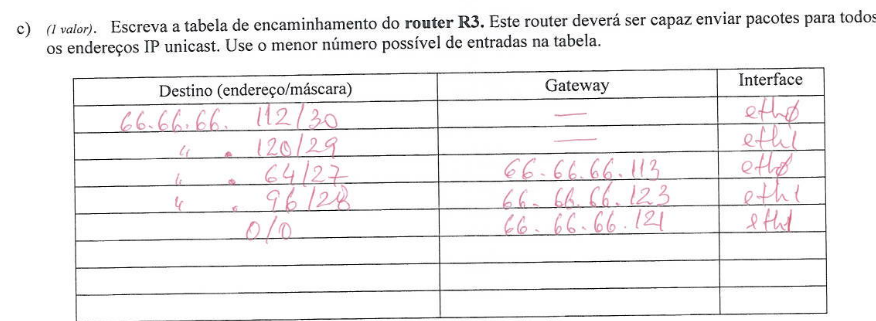 c) (1 valor). Escreva a tabela de encaminhamento do router R3. Este router deverá ser capaz enviar pacotes para todos
os endereços IP unicast. Use o menor número possível de entradas na tabela.
Destino (endereço/máscara) Gateway Interface
66.66.66. 112/30 — eth0
" . 120/29 — eth1
" . 64/27 66.66.66.113 eth0
" . 96/28 66.66.66.123 eth1
0/0 66.66.66.121 eth1